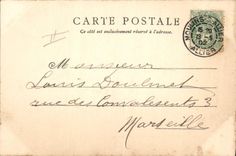 CARTE POSTALE
Ce côté est exclusivement réservé à l'adresse.
ALLIER
Monsieur
Louis Doulmet
rue des Convalescents 3
Marseille